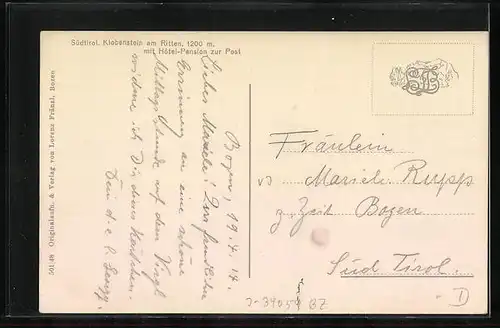 Südtirol. Klobenstein am Ritten, 1200 m.
mit Hôtel-Pension zur Post
501 48 Originalaufn. & Verlag von Lorenz Fränzl, Bozen
Bozen, 19.4.14.
Liebes Mariele! Zur
Erinnerung an eine schöne
Mittagsstunde auf dem Virgl
widme ich Dir dieses Kärtchen.
Dein
Fräulein
Mariele Rupp
z. Zeit Bozen
Süd Tirol.
J-34054 BZ
D